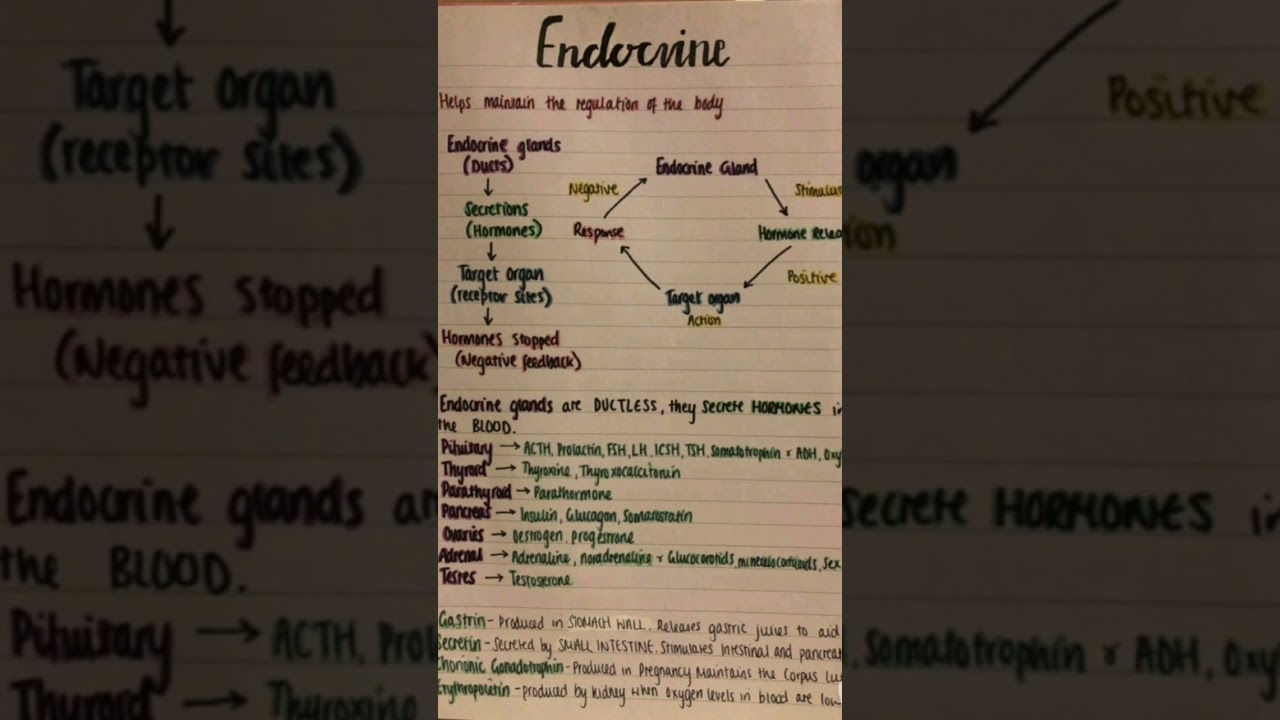 Endocrine
Helps maintain the regulation of the body
Endocrine glands
(Ducts)
Secretions
(Hormones)
Target organ
(receptor sites)
Hormones stopped
(Negative feedback)
Endocrine Gland
Negative
Stimulas
Response
Hormone Relea
Positive
Target organ
Action
Endocrine glands are DUCTLESS, they secrete HORMONES in
the BLOOD.
Pituitary → ACTH, Prolactin, FSH, LH, ICSH, TSH, Somatotrophin & ADH, Oxy
Thyroid → Thyroxine, Thyroxocalcitonin
Parathyroid → Parathormone
Pancreas → Insulin, Glucagon, Somatostatin
Ovaries → Oestrogen, progestrone
Adrenal → Adrenaline, noradrenaline & Glucocorotids, mineralocorticoids, Sex
Testes → Testosterone
Gastrin - Produced in STOMACH WALL. Releases gastric juices to aid
Secretin - Secreted by SMALL INTESTINE. Stimulates intestinal and pancreat
Chorionic Gonadotrophin - Produced in Pregnancy Maintains the Corpus lu
Erythropoietin - produced by kidney when oxygen levels in blood are low
Target organ
(receptor sites)
Hormones stopped
(Negative feedback)
Endocrine glands ar
the BLOOD.
Pituitary → ACTH, Prol
Thyroid → Thyroxine
Positive
organ
ion
secrete HORMONES in
Somatotrophin & ADH, Oxy